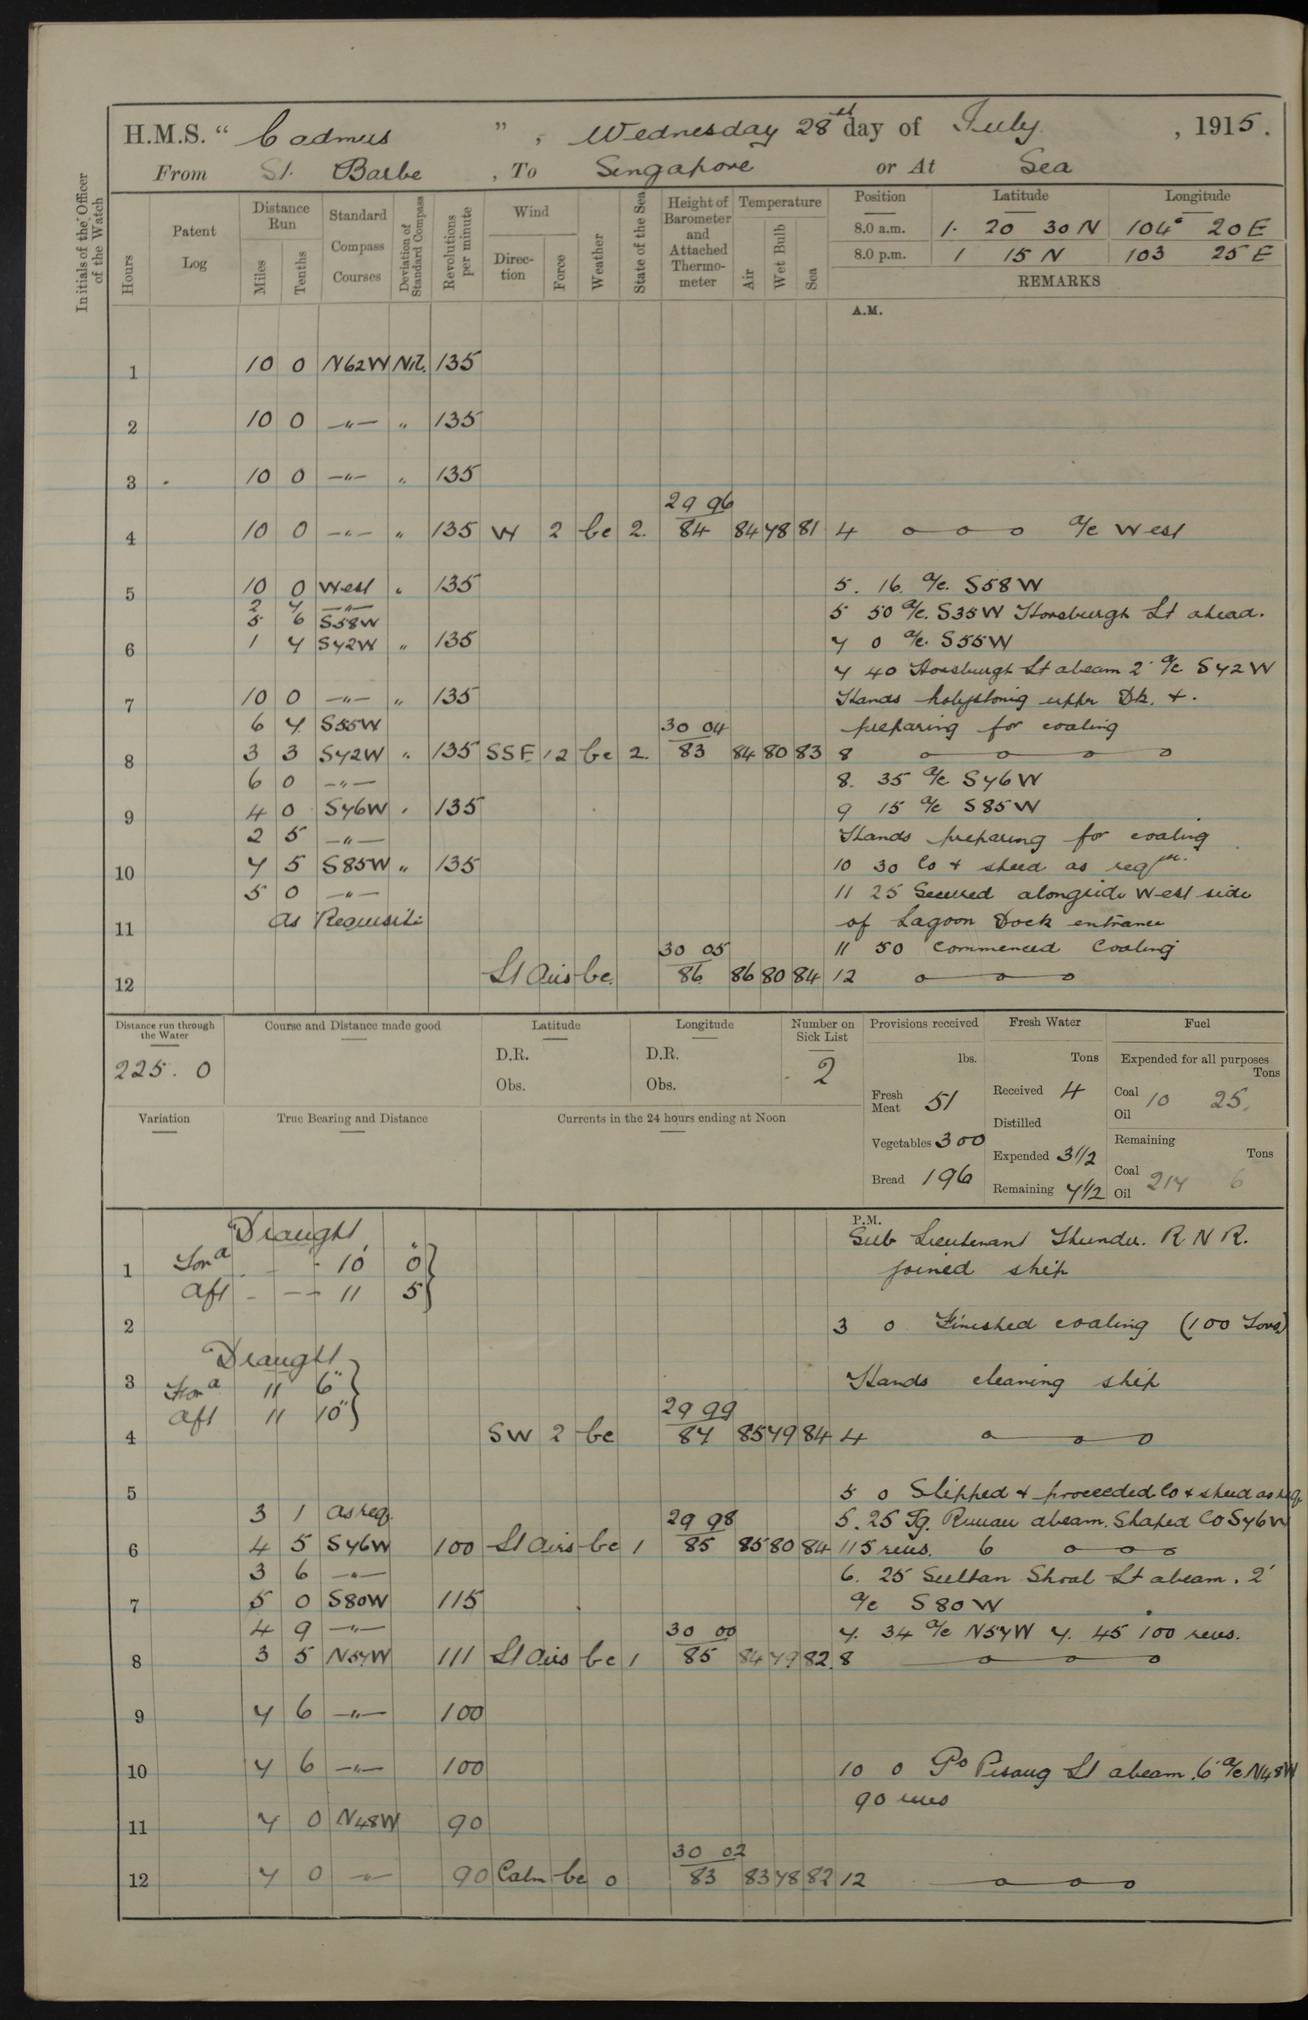 H.M.S. “ Cadmus ” , Wednesday 28th day of July , 1915.
From St. Barbe , To Singapore or At Sea
Initials of the Officer of the Watch
Hours
Patent Log
Distance Run
Miles
Tenths
Standard Compass Courses
Deviation of Standard Compass
Revolutions per minute
Wind
Direction
Force
Weather
State of the Sea
Height of Barometer and Attached Thermometer
Temperature
Air
Wet Bulb
Sea
Position Latitude Longitude
8.0 a.m. 1. 20 30 N 104° 20 E
8.0 p.m. 1 15 N 103 25 E
REMARKS
A.M.
1 10 0 N62W Nil. 135
2 10 0 —"— " 135
3 10 0 —"— " 135
29 96
4 10 0 —"— " 135 W 2 bc 2. 84 84 78 81 4 o o o a/c West
5 10 0 West " 135 5. 16. a/c. S58W
2 7 —"—
5 6 S58W 5 50 a/c. S35W Horsburgh Lt ahead.
6 1 7 S42W " 135 7 0 a/c. S55W
7 40 Horsburgh Lt abeam 2' a/c S72W
7 10 0 —"— " 135 Hands holystoning upper Dk. +
6 7 S55W 30 04 preparing for coaling
8 3 3 S72W " 135 SSE 1 2 bc 2. 83 84 80 83 8 o o o o
6 0 —"— 8. 35 a/c S76W
9 4 0 S76W " 135 9 15 a/c S85W
2 5 —"— Hands preparing for coaling
10 7 5 S85W " 135 10 30 Co + speed as reqn.
5 0 —"— 11 25 Secured alongside West side
11 as Requisite of Lagoon Dock entrance
30 05 11 50 Commenced Coaling
12 Lt Airs bc. 86 86 80 84 12 o o o
Distance run through the Water
225. 0
Course and Distance made good
Latitude
D.R.
Obs.
Longitude
D.R.
Obs.
Number on Sick List
2
Provisions received
lbs.
Fresh Meat 51
Vegetables 300
Bread 196
Fresh Water
Tons
Received 4
Distilled
Expended 3 1/2
Remaining 71/2
Fuel
Expended for all purposes
Tons
Coal 10 25.
Oil
Remaining
Tons
Coal 217 6
Oil
Variation
True Bearing and Distance
Currents in the 24 hours ending at Noon
P.M.
Draught Sub Lieutenant R N R.
1 Ford 10' 0" joined ship
Aft 11 5
2 3 0 Finished coaling (100 Tons)
Draught
3 Ford 11 6" Hands cleaning ship
Aft 11 10" 29 99
4 SW 2 bc 87 85 79 84 4 o o o
5 5 0 Slipped + proceeded Co + speed as req.
3 1 as req. 29 98 5. 25 Tg. abeam. Shaped Co S76W
6 4 5 S76W 100 Lt Airs bc 1 85 85 80 84 115 revs. 6 o o o
3 6 —"— 6. 25 Sultan Shoal Lt abeam. 2'
7 5 0 S80W 115 a/c S80W
4 9 —"— 30 00 7. 34 a/c N57W 7. 45 100 revs.
8 3 5 N57W 111 Lt Airs bc 1 85 84 79 82 8 o o o
9 7 6 —"— 100
10 7 6 —"— 100 10 0 Po Pisang Lt abeam. 6' a/c N48W
90 revs
11 7 0 N48W 90
30 02
12 7 0 —"— 90 Calm bc 0 83 83 78 82 12 o o o